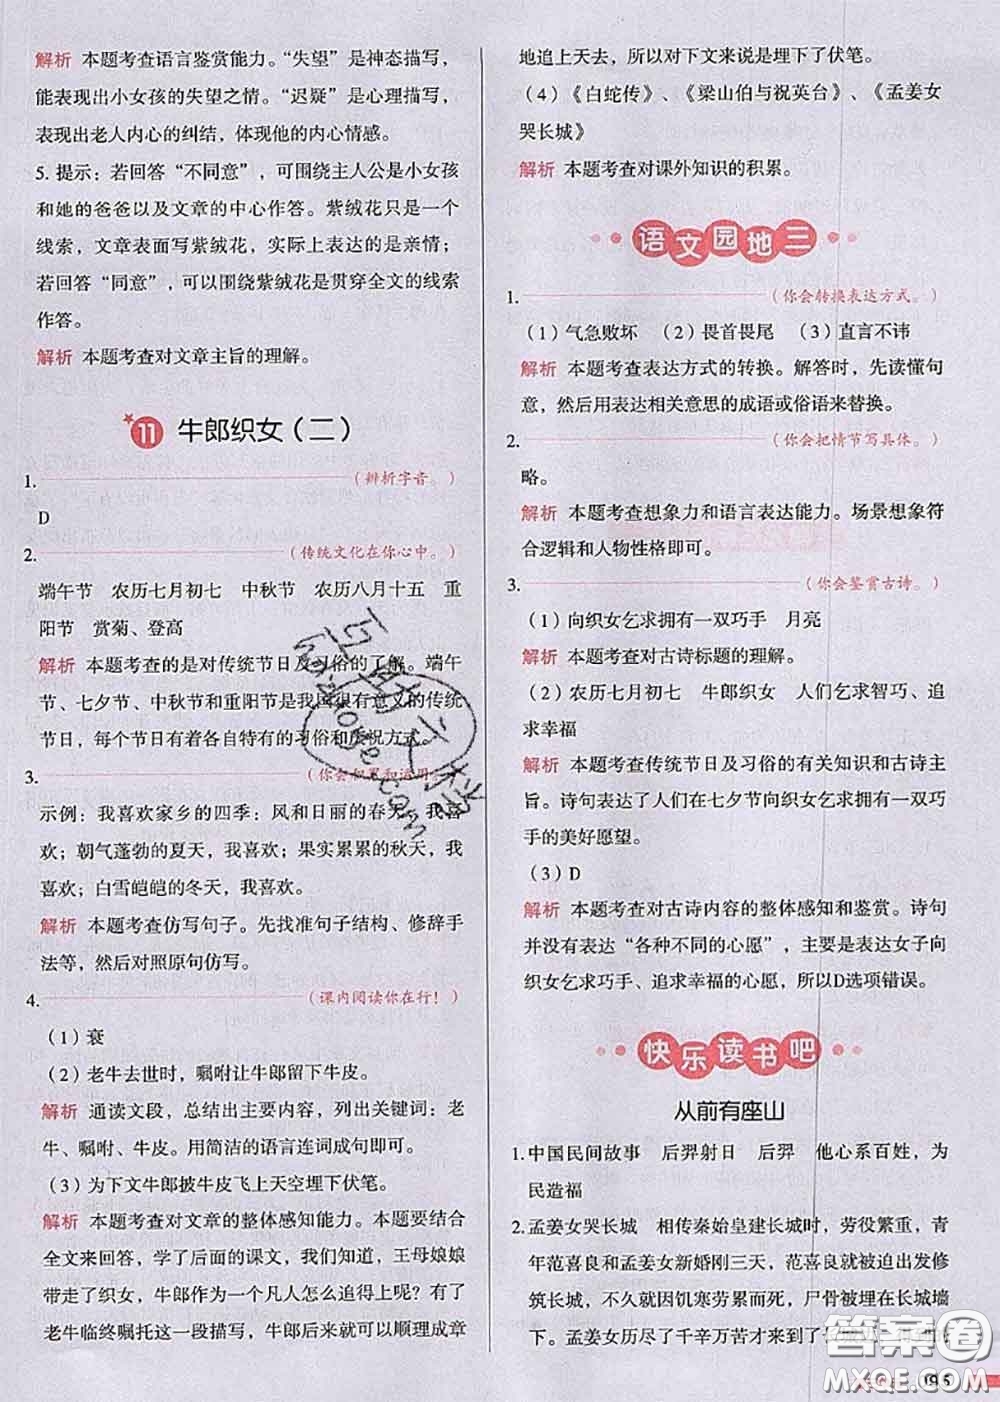 解析 本题考查语言鉴赏能力。“失望”是神态描写，
能表现出小女孩的失望之情。“迟疑”是心理描写，
表现出老人内心的纠结，体现他的内心情感。
5. 提示：若回答“不同意”，可围绕主人公是小女孩
和她的爸爸以及文章的中心作答。紫绒花只是一个
线索，文章表面写紫绒花，实际上表达的是亲情；
若回答“同意”，可以围绕紫绒花是贯穿全文的线索
作答。
解析 本题考查对文章主旨的理解。
11 牛郎织女（二）
1. （辨析字音。）
D
2. （传统文化在你心中。）
端午节 农历七月初七 中秋节 农历八月十五 重
阳节 赏菊、登高
解析 本题考查的是对传统节日及习俗的了解。端午
节、七夕节、中秋节和重阳节是我国很有意义的传统
节日，每个节日有着各自特有的习俗和庆祝方式。
3. （你会积累和运用。）
示例：我喜欢家乡的四季：风和日丽的春天，我喜
欢；朝气蓬勃的夏天，我喜欢；果实累累的秋天，我
喜欢；白雪皑皑的冬天，我喜欢。
解析 本题考查仿写句子。先找准句子结构、修辞手
法等，然后对照原句仿写。
4. （课内阅读你在行！）
（1）衰
（2）老牛去世时，嘱咐让牛郎留下牛皮。
解析 通读文段，总结出大意，列出关键词：老
牛、嘱咐、牛皮。用简洁的语言连词成句即可。
（3）为下文牛郎披牛皮飞上天空埋下伏笔。
解析 本题考查对文章的整体感知能力。本题要结合
全文来回答，学了后面的课文，我们知道，王母娘娘
带走了织女，牛郎作为一个凡人怎么追得上呢？有了
老牛临终嘱托这一段描写，牛郎后来就可以顺理成章
地追上天去，所以对下文来说是埋下了伏笔。
（4）《白蛇传》、《梁山伯与祝英台》、《孟姜女
哭长城》
解析 本题考查对课外知识的积累。
语文园地三
1. （你会转换表达方式。）
（1）气急败坏 （2）畏首畏尾 （3）直言不讳
解析 本题考查表达方式的转换。解答时，先读懂句
意，然后用表达相关意思的成语或俗语来替换。
2. （你会把情节写具体。）
略。
解析 本题考查想象力和语言表达能力。场景想象符
合逻辑和人物性格即可。
3. （你会鉴赏古诗。）
（1）向织女乞求拥有一双巧手 月亮
解析 本题考查对古诗标题的理解。
（2）农历七月初七 牛郎织女 人们乞求智巧、追
求幸福
解析 本题考查传统节日及习俗的有关知识和古诗主
旨。诗句表达了人们在七夕节向织女乞求拥有一双巧
手的美好愿望。
（3）D
解析 本题考查对古诗内容的整体感知和鉴赏。诗句
并没有表达“各种不同的心愿”，主要是表达女子向
织女乞求巧手、追求幸福的心愿，所以D选项错误。
快乐读书吧
从前有座山
1. 中国民间故事 后羿射日 后羿 他心系百姓，为
民造福
2. 孟姜女哭长城 相传秦始皇建长城时，劳役繁重，青
年范喜良和孟姜女新婚刚三天，范喜良就被迫出发修
筑长城，不久就因饥寒劳累而死，尸骨被埋在长城墙
下。孟姜女历尽了千辛万苦才来到了
答案圈
MXQE.COM